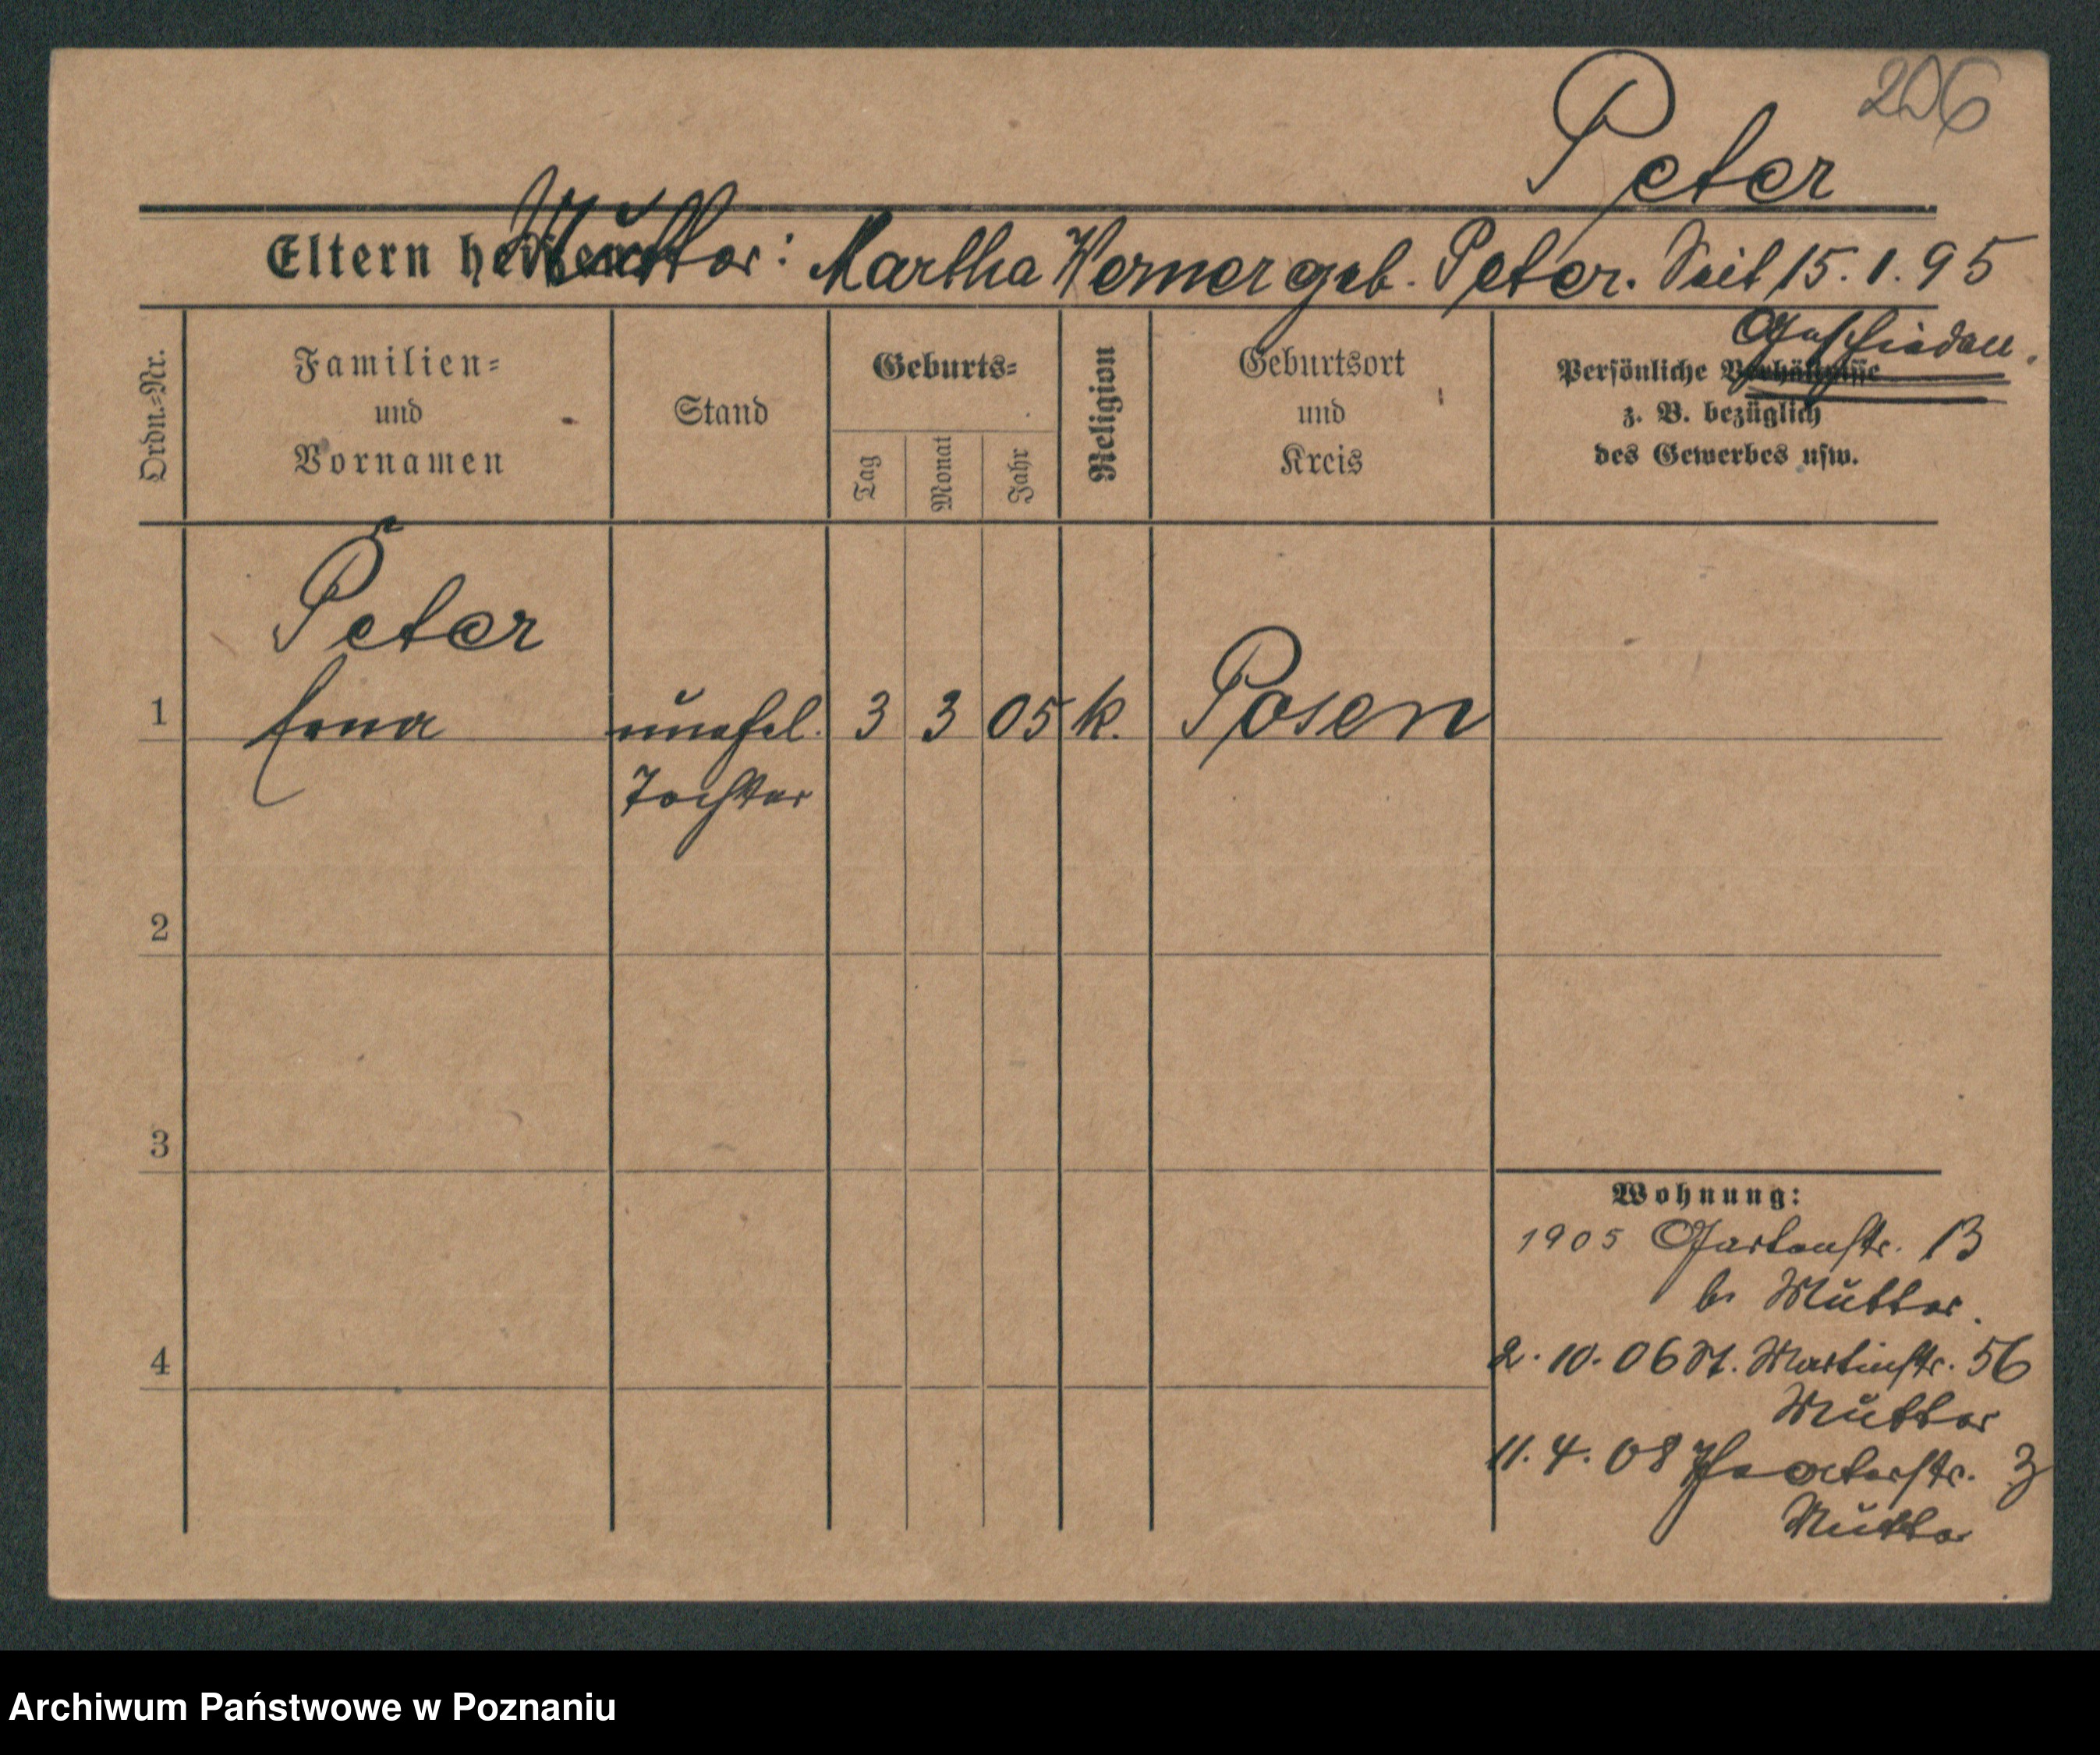 206
Peter
Eltern heißen: Mutter: Martha Werner geb. Peter. Seit 15.1.95
Geschieden.
Ordn.-Nr.
Familien-
und
Vornamen
Stand
Geburts-
Tag
Monat
Jahr
Religion
Geburtsort
und
Kreis
Persönliche Verhältnisse
z. B. bezüglich
des Gewerbes usw.
Peter
1 Erna unehel. 3 3 05 k. Posen
Tochter
2
3
4
Wohnung:
1905 Gartenstr. 13
b. Mutter.
2.10.06 St. Martinstr. 56
Mutter
11.4.08 3
Mutter
Archiwum Państwowe w Poznaniu